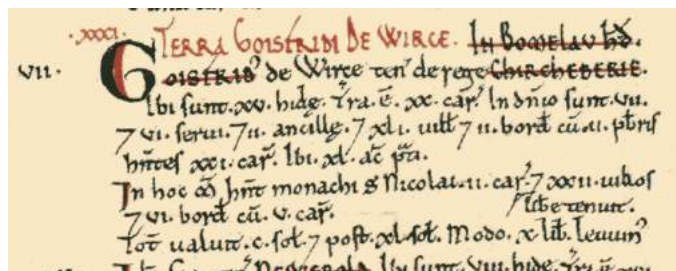 ·xxxi· TERRA GOISFRIDI DE WIRCE. IN BOMELAV HD̄.
·VII· GOISFRID' de Wirce ten' de rege CHIRCHEBERIE.
Ibi sunt.xv. hidę. T̄ra.ē. xx. car'. In dn̄io sunt.vii.
⁊ vi. serui.⁊ ii. ancillę.⁊ xli. uill̄i ⁊ ii. bord̄ cū.ii. pb̄ris
hn̄tes xxi. car'. Ibi.xl. ac̄ p̄ti.
In hoc m̄ hn̄t monachi S Nicolai.ii. car'.⁊ xxii. uill̄os
⁊ vi. bord̄ cū. v. car'. lib̄e tenuit.
Tot̄ ualuit.c. sol'.⁊ post.xl. sol'. Modo. x. lib̄.